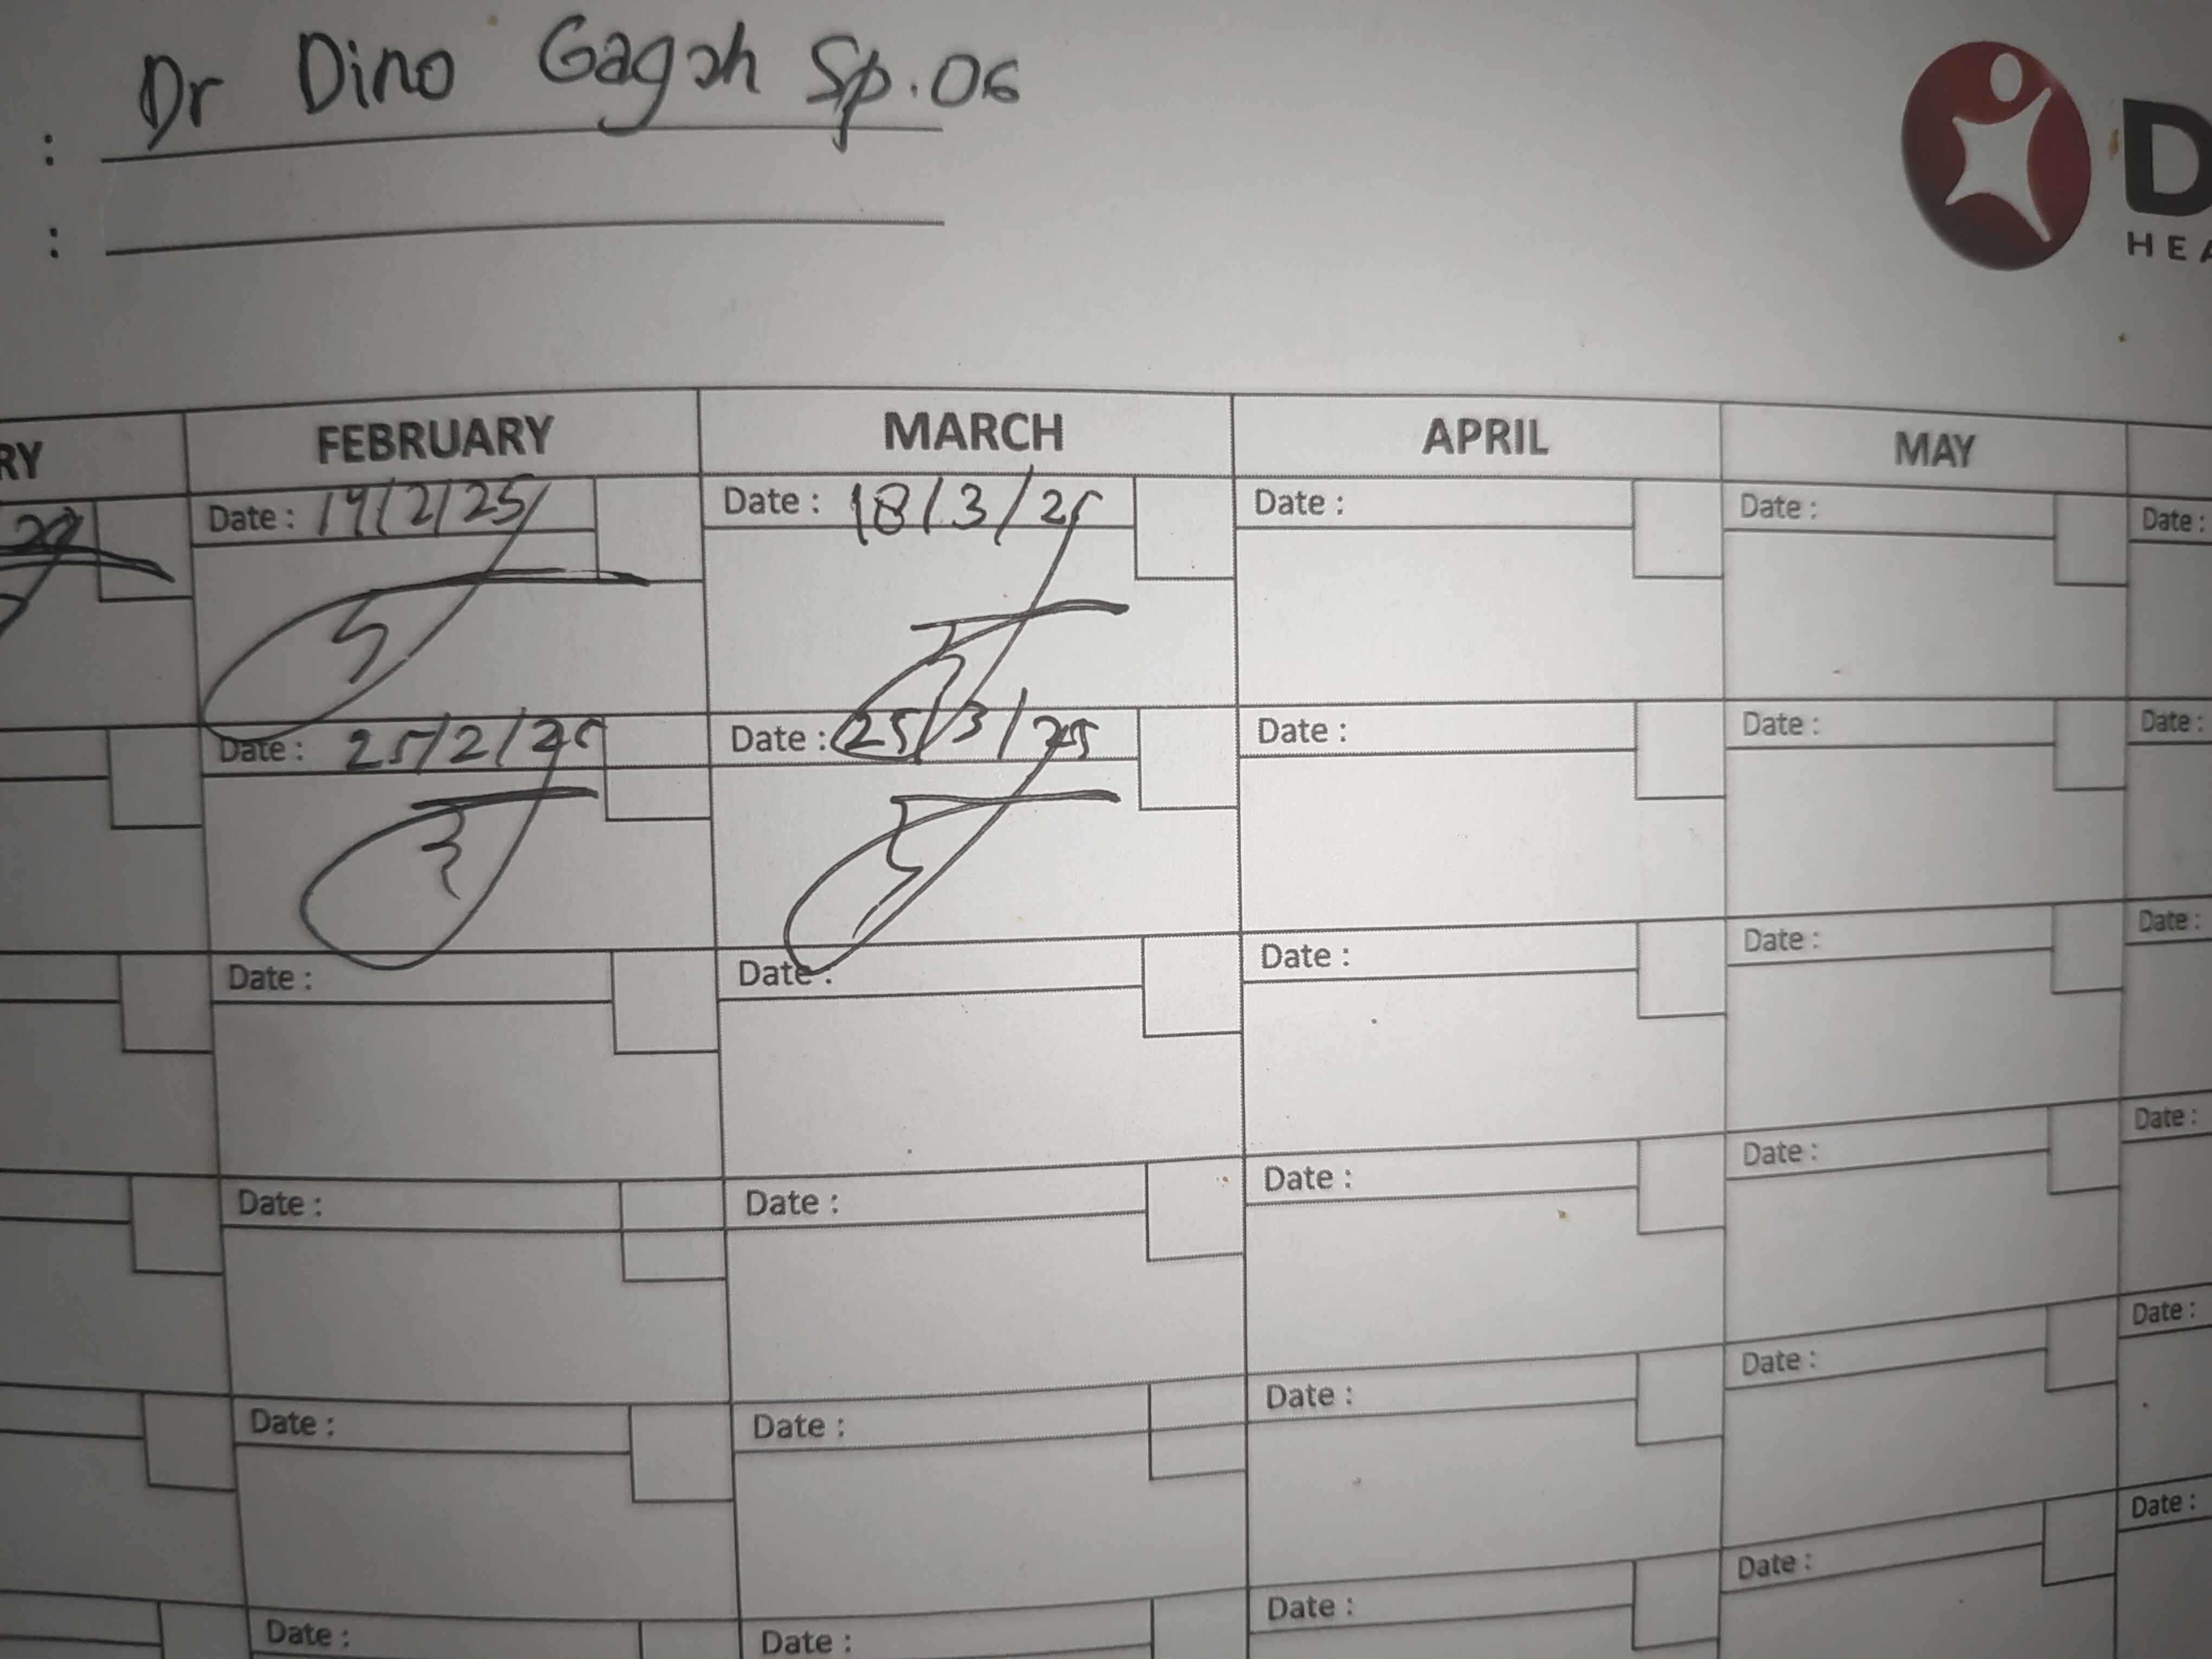 : Dr Dino Gagah Sp.OG
:
D
HEA
RY FEBRUARY MARCH APRIL MAY
Date : 19/2/25 Date : 18/3/25 Date : Date : Date :
Date : 25/2/25 Date : 25/3/25 Date : Date : Date :
Date : Date : Date : Date : Date :
Date : Date : Date : Date : Date :
Date : Date : Date : Date : Date :
Date : Date : Date : Date : Date :